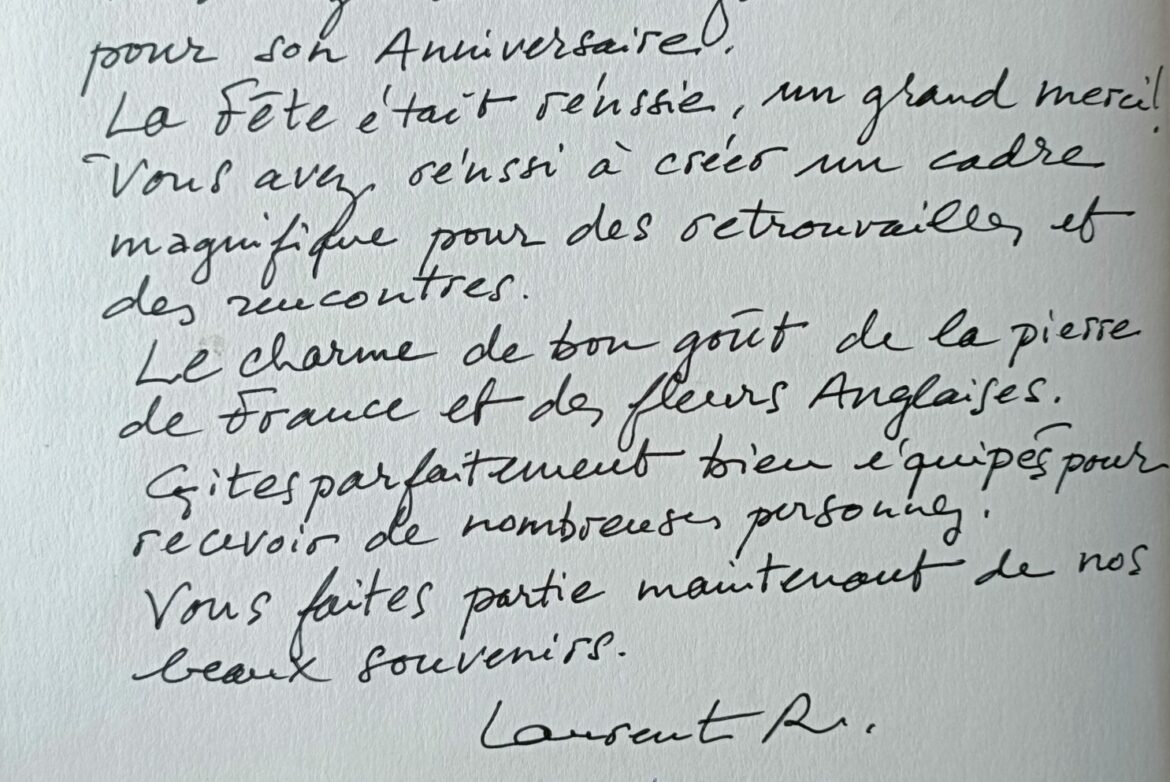 pour son Anniversaire.
La Fête était réussie, un grand merci!
Vous avez réussi à créer un cadre
magnifique pour des retrouvailles et
des rencontres.
Le charme de bon goût de la pierre
de France et des fleurs Anglaises.
Gites parfaitement bien équipés pour
recevoir de nombreuses personnes.
Vous faites partie maintenant de nos
beaux souvenirs.
Laurent R.